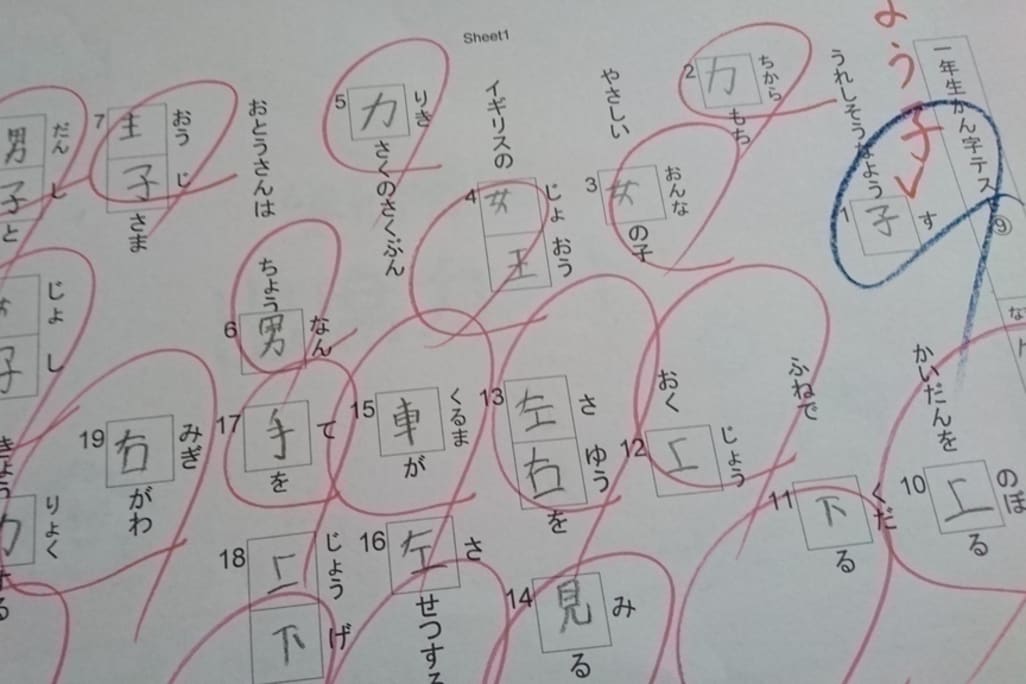 Sheet1
一年生かん字テスト⑨
よう子
うれしそうなよう
1 子 す
2 力 ちから
もち
やさしい
3 女 おんな
の子
イギリスの
4 女王 じょおう
5 力 りき
さくのさくぶん
おとうさんは
ちょう
6 男 なん
7 王子 おうじ
さま
男子 だんし
と
じょし
子
かいだんを
10 上 のぼ
る
ふねで
11 下 くだ
る
おく
12 上 じょう
13 左右 さゆう
を
14 見 み
る
15 車 くるま
が
16 左 さ
せつする
17 手 て
を
18 上下 じょうげ
19 右 みぎ
がわ
きょう
力 りょく
する